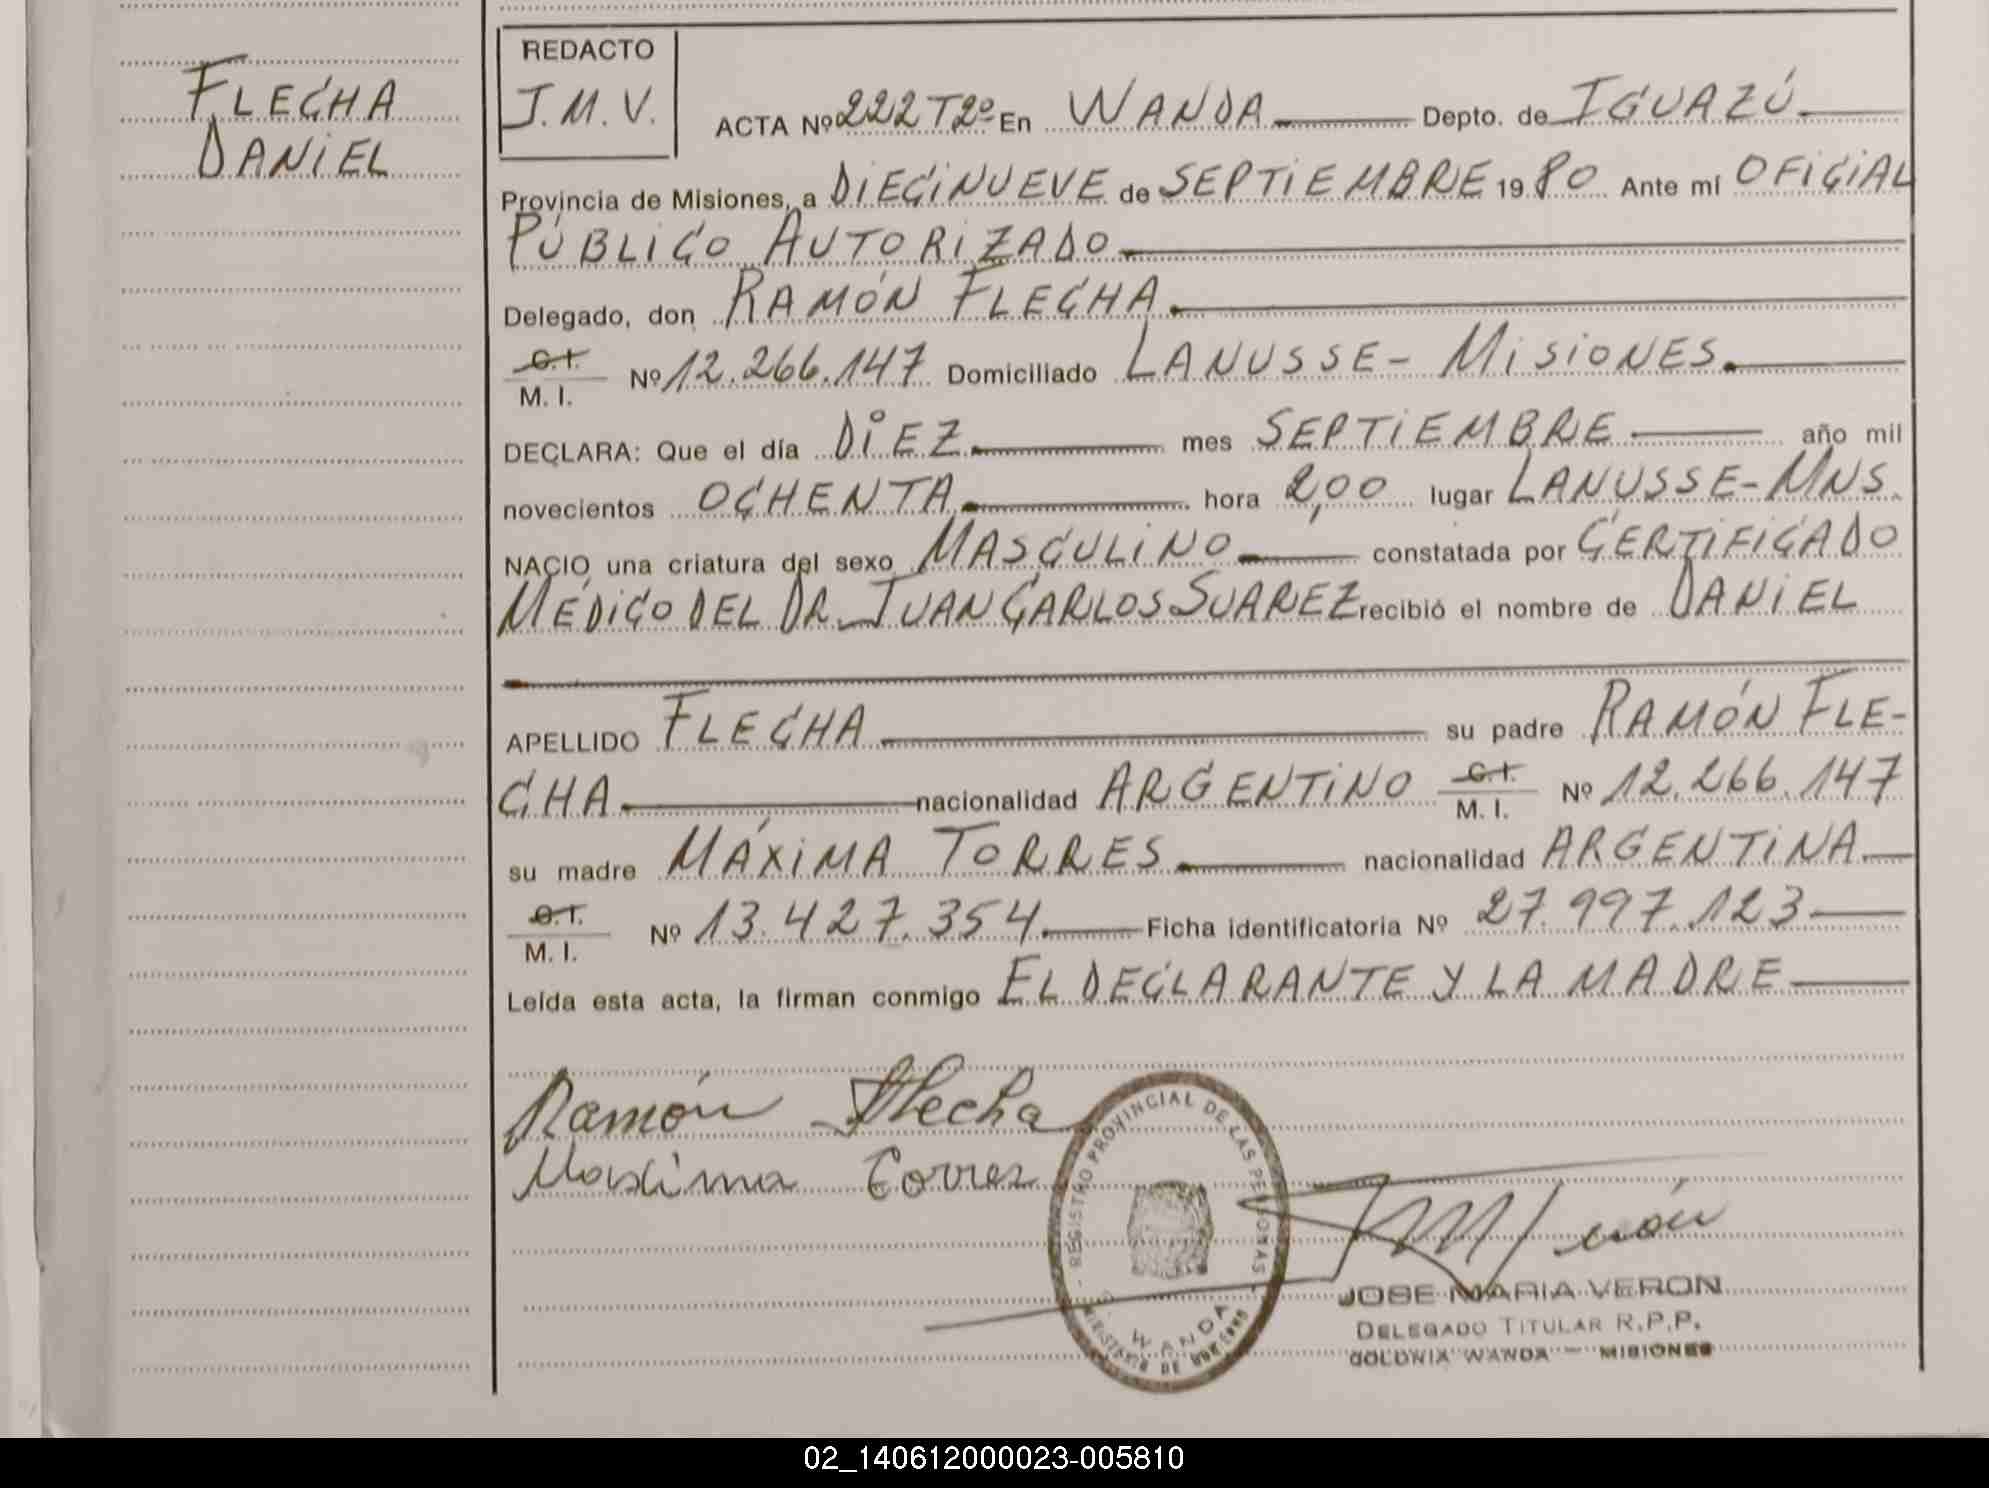 FLECHA
DANIEL
REDACTO
J.M.V.
ACTA Nº 222 T2º En WANDA Depto. de IGUAZÚ
Provincia de Misiones, a DIECINUEVE de SEPTIEMBRE 1980 Ante mí OFICIAL
PÚBLICO AUTORIZADO
Delegado, don RAMÓN FLECHA
C.I.
M. I. Nº 12.266.147 Domiciliado LANUSSE- MISIONES.
DECLARA: Que el día DIEZ mes SEPTIEMBRE año mil
novecientos OCHENTA hora 2,00 lugar LANUSSE-MNS.
NACIO una criatura del sexo MASCULINO constatada por CERTIFICADO
MÉDICO DEL DR. JUAN CARLOS SUAREZ recibió el nombre de DANIEL
APELLIDO FLECHA su padre RAMÓN FLE-
CHA nacionalidad ARGENTINO C.I. M. I. Nº 12.266.147
su madre MÁXIMA TORRES nacionalidad ARGENTINA
C.I.
M. I. Nº 13.427.354 Ficha identificatoria Nº 27.997.123
Leída esta acta, la firman conmigo EL DECLARANTE Y LA MADRE
Ramón Flecha
Maxima Torres
REGISTRO PROVINCIAL DE LAS PERSONAS
WANDA
MINISTERIO DE GOBIERNO
JOSE MARIA VERON
DELEGADO TITULAR R.P.P.
COLONIA WANDA - MISIONES
02_140612000023-005810